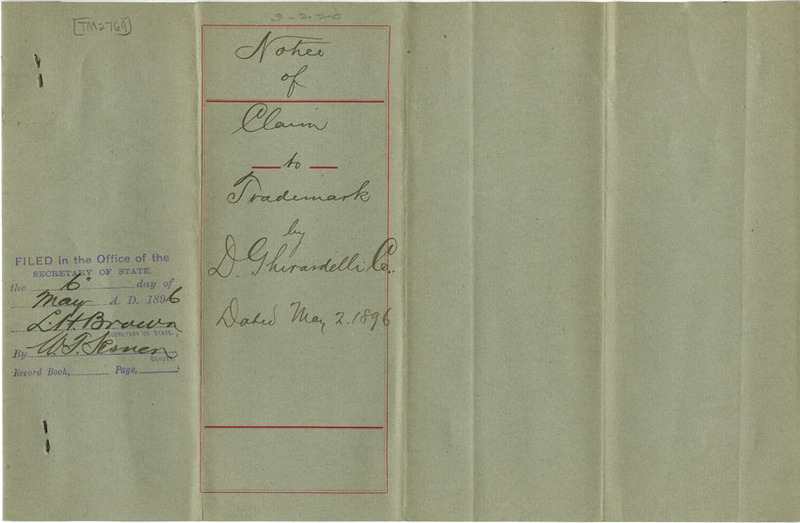 TM2769
3-2-20
Notice
of
Claim
to
Trademark
by
D. Ghirardelli Co.
Dated May 2. 1896
FILED in the Office of the
SECRETARY OF STATE.
the 6 day of
May A. D. 1896
L. H. Brown
SECRETARY OF STATE.
By W. T. Sesnon
DEPUTY.
Record Book, Page,